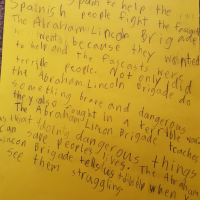 Spain to help the
Spainish people fight the Fascists
The Abraham Lincoln Brigade
went because they wanted
to help and The Fascasts were
terrible people. Not only did
the Abraham Lincoln Brigade do
something brave and dangerous
they also fought in a terrible
The Abraham Lincoln Brigade teaches
us that doing dangerous things
can save peoples lives. The Abraham
Lincoln Brigade tell us to when
see them struggling